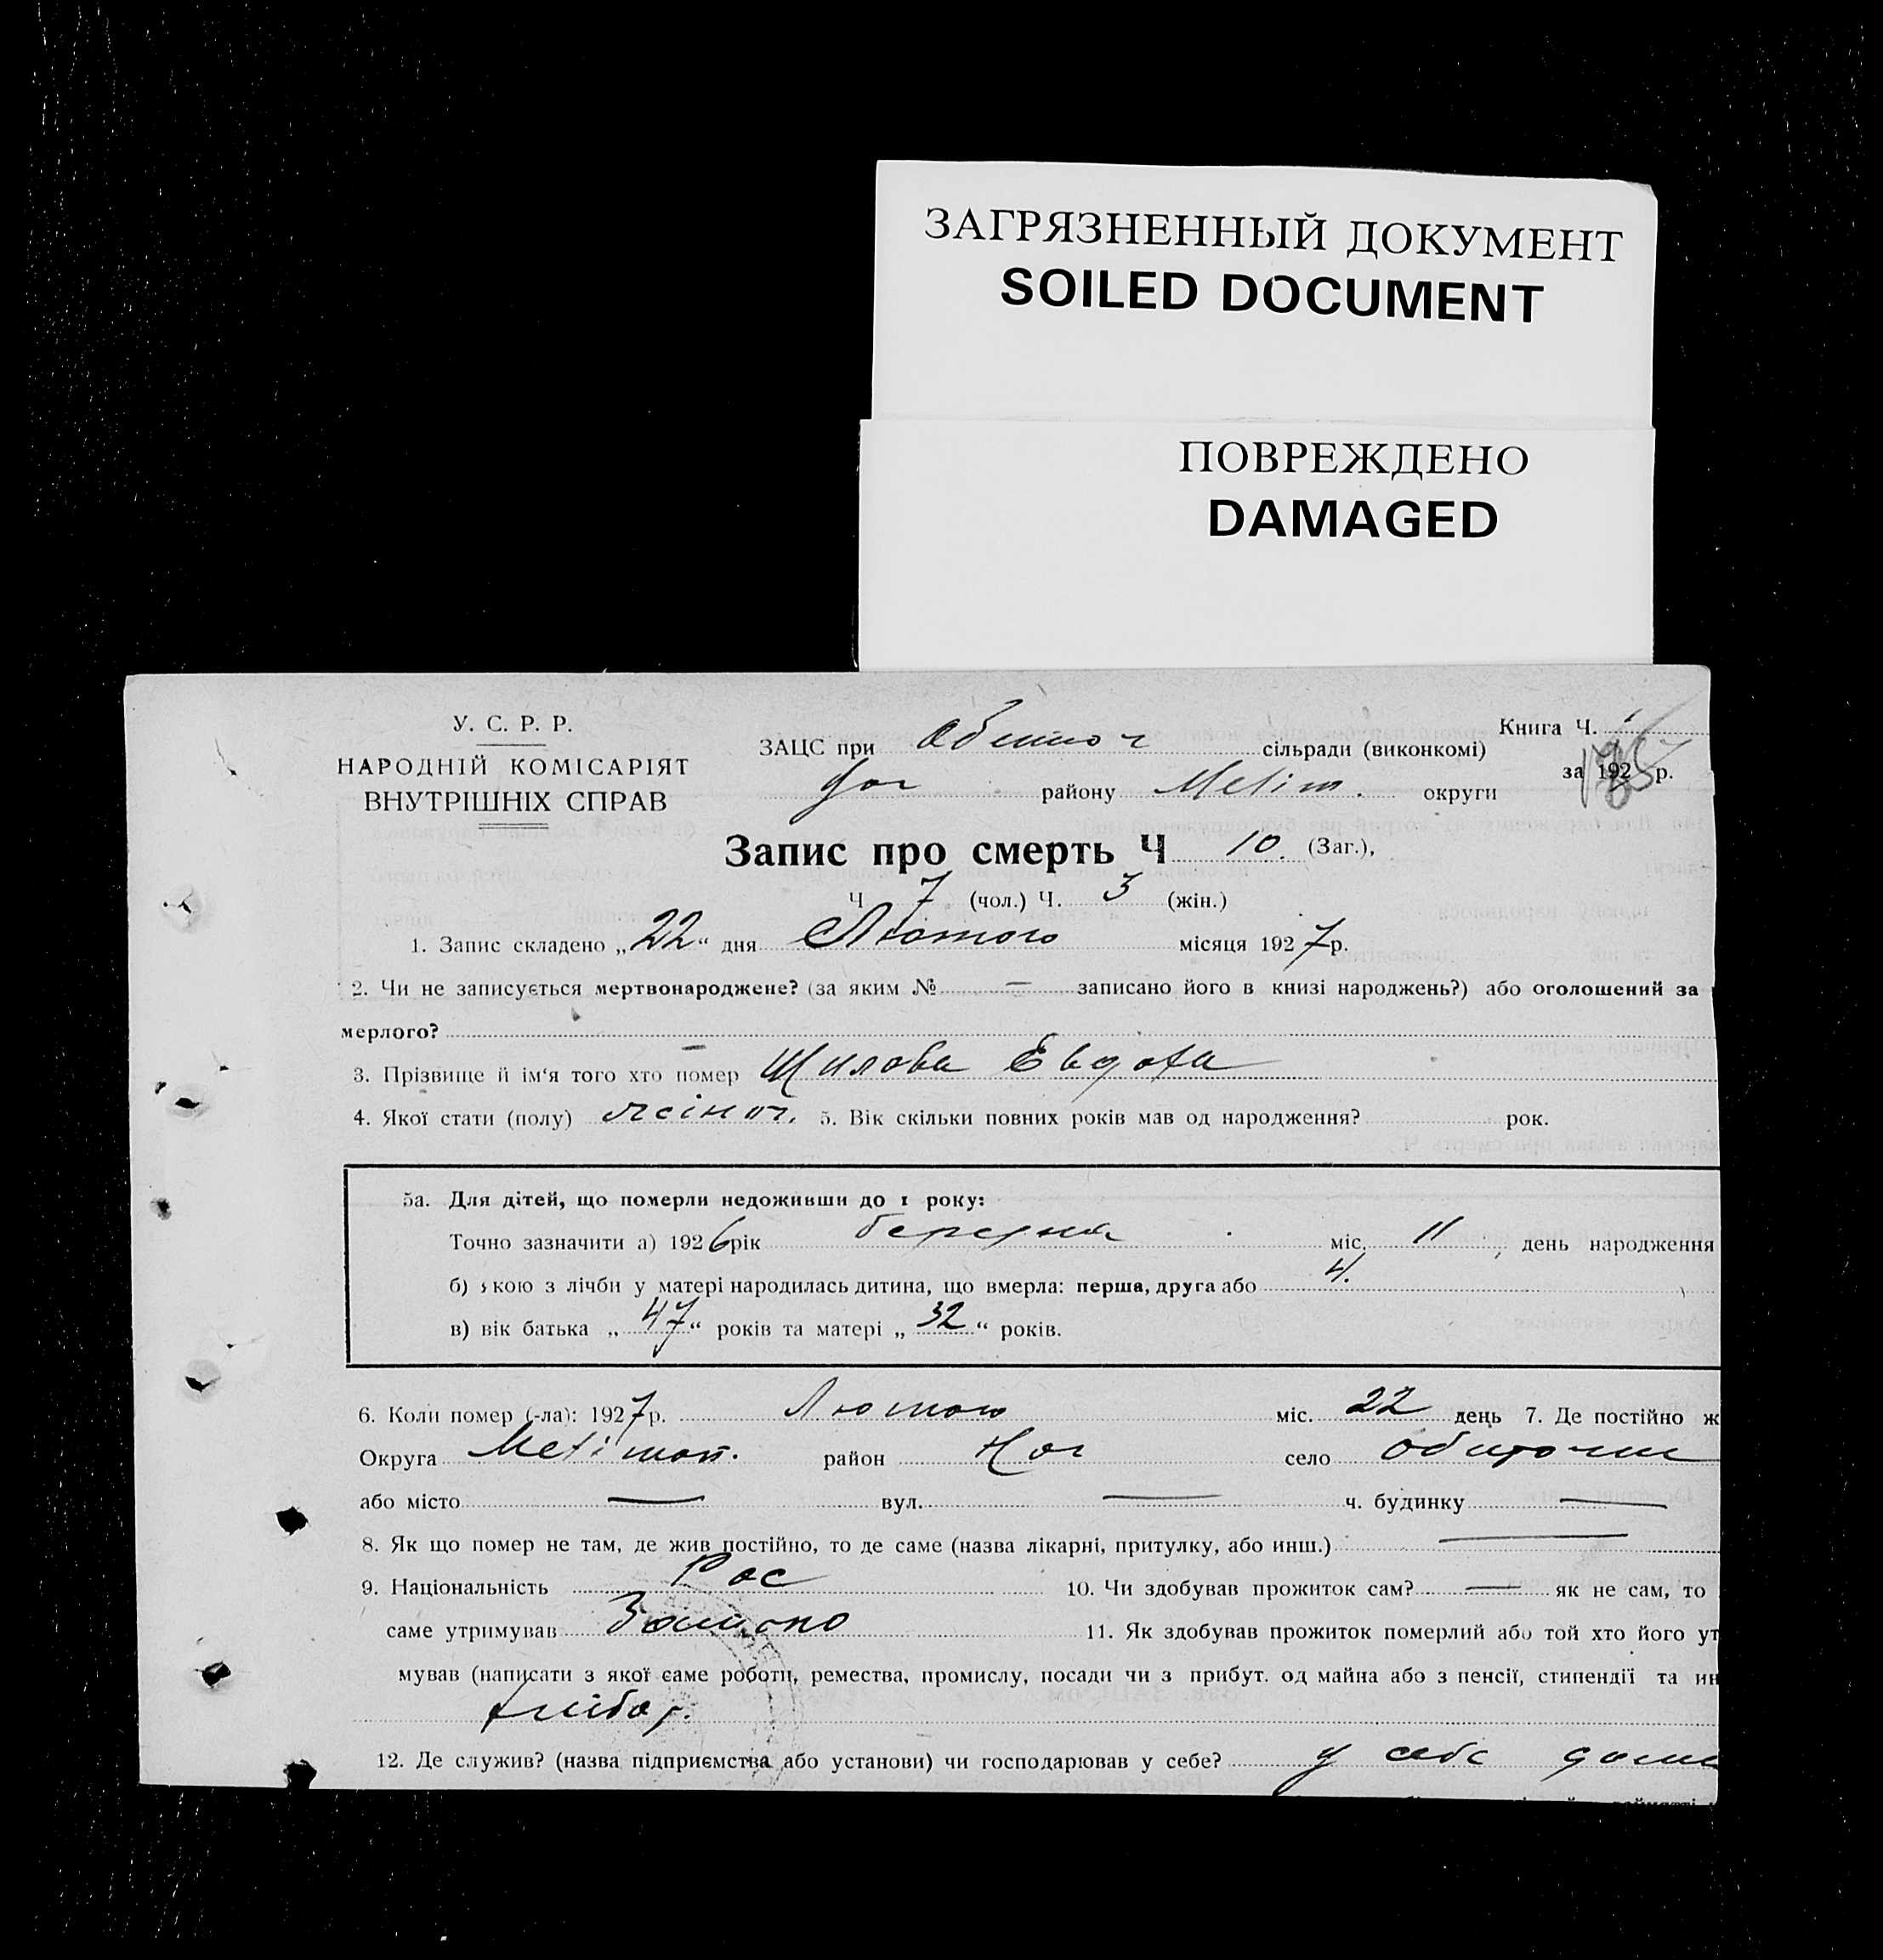 ЗАГРЯЗНЕННЫЙ ДОКУМЕНТ
SOILED DOCUMENT
ПОВРЕЖДЕНО
DAMAGED
У. С. Р. Р.
НАРОДНІЙ КОМІСАРІЯТ
ВНУТРІШНІХ СПРАВ
Книга Ч.
ЗАЦС при сільради (виконкомі)
за 192 р.
району Меліт. округи
Запис про смерть Ч 10. (Заг.),
Ч 7 (чол.) Ч. 3 (жін.)
1. Запис складено „22“ дня Лютого місяця 1927 р.
2. Чи не записується мертвонароджене? (за яким № — записано його в книзі народжень?) або оголошений за
мерлого? —
3. Прізвище й ім'я того хто помер Шилова Евдоха
4. Якої стати (полу) жіноч. 5. Вік скільки повних років мав од народження? рок.
5а. Для дітей, що померли недоживши до 1 року:
Точно зазначити а) 1926 рік березня міс. 11, день народження
б) кою з лічби у матері народилась дитина, що вмерла: перша, друга або 4.
в) вік батька „47“ років та матері „32“ років.
6. Коли помер (-ла): 1927 р. Лютого міс. 22 день 7. Де постійно ж
Округа Мелітоп. район Ног село Обиточне
або місто — вул. — ч. будинку —
8. Як що помер не там, де жив постійно, то де саме (назва лікарні, притулку, або инш.) —
9. Національність Рос 10. Чи здобував прожиток сам? — як не сам, то
саме утримував Батько 11. Як здобував прожиток померлий або той хто його ут
мував (написати з якої саме роботи, ремества, промислу, посади чи з прибут. од майна або з пенсії, стипендії та ин
хлібор.
12. Де служив? (назва підприємства або установи) чи господарював у себе? у себе дома